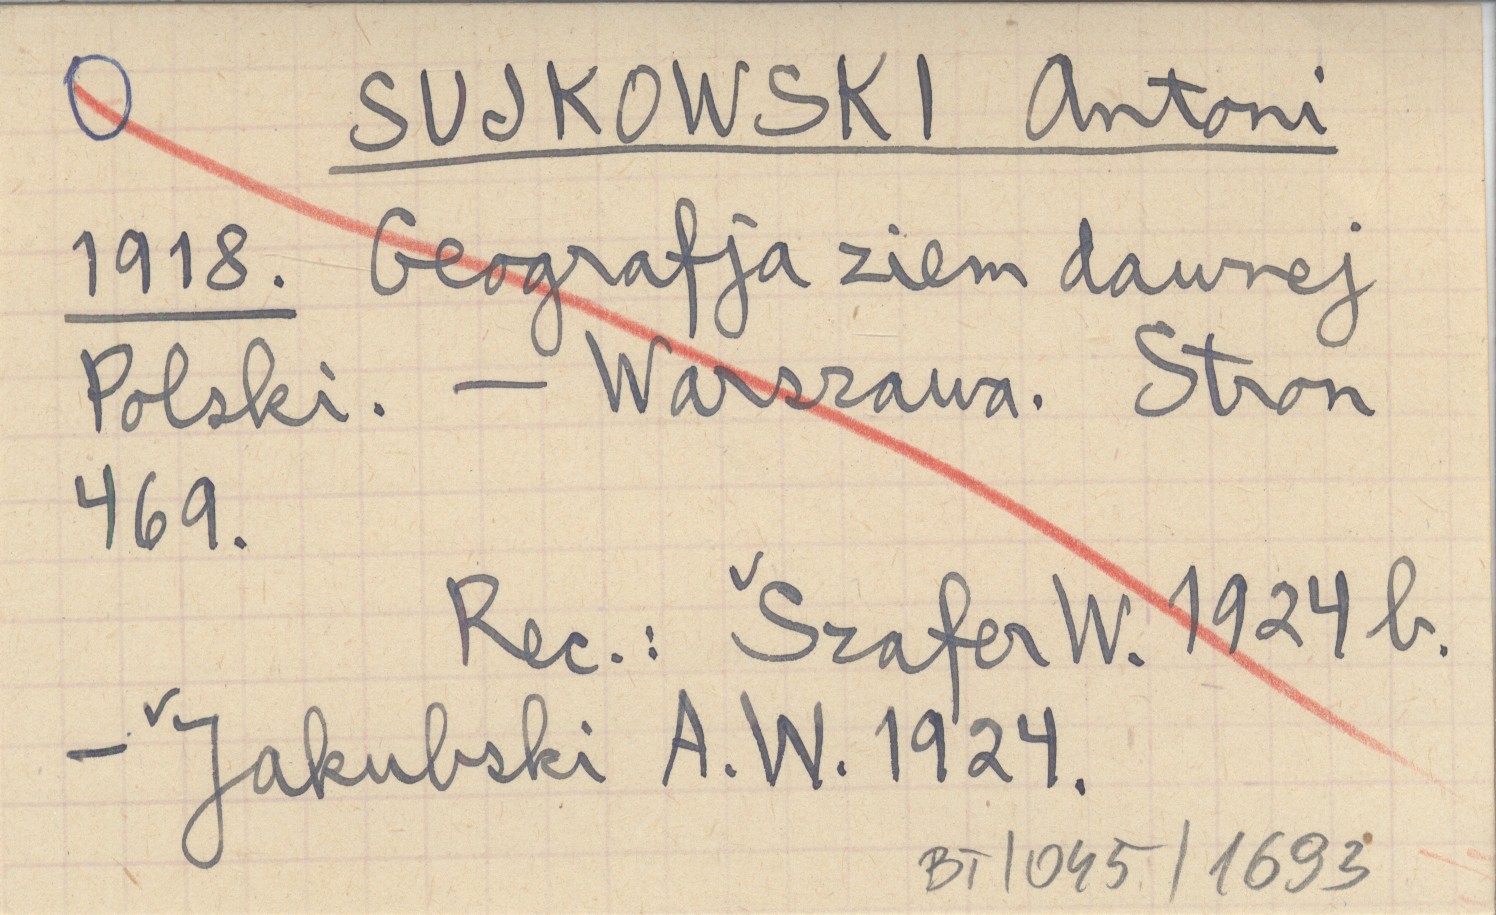 SUJKOWSKI Antoni
1918. Geografja ziem dawnej
Polski. — Warszawa. Stron
469.
Rec.: Szafer W. 1924 b.
— Jakubski A.W. 1924.
BT/045/1693